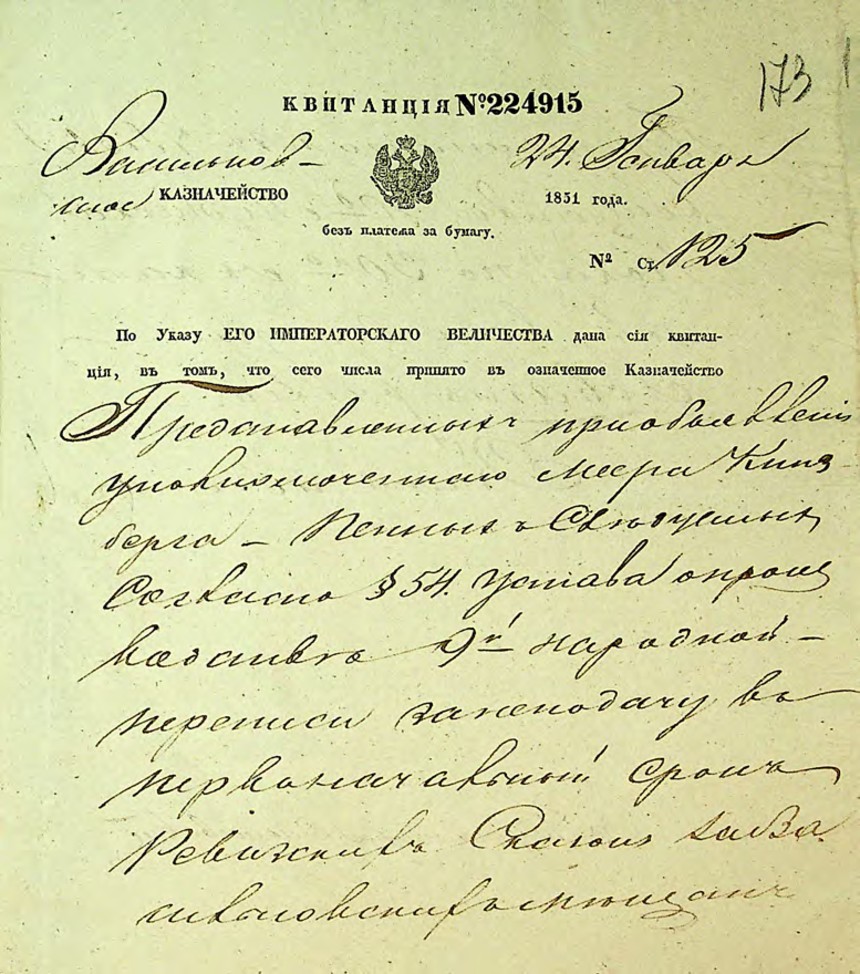 173
КВИТАНЦІЯ №224915
Васильков-
ское КАЗНАЧЕЙСТВО
24. Генваря
1851 года.
безъ платежа за бумагу.
№ Ст. 125
По Указу ЕГО ИМПЕРАТОРСКАГО ВЕЛИЧЕСТВА дана сія квитан-
ція, въ томъ, что сего числа принято въ означенное Казначейство
Представленныхъ при объявленіи
уполномоченнаго Меера Кинз-
берга – Пенныхъ
Согласно § 54. Устава о произ
водствѣ 9й народной –
переписи за неподачу въ
первоначальный срокъ
Ревизскихъ Сказокъ
мѣщанъ